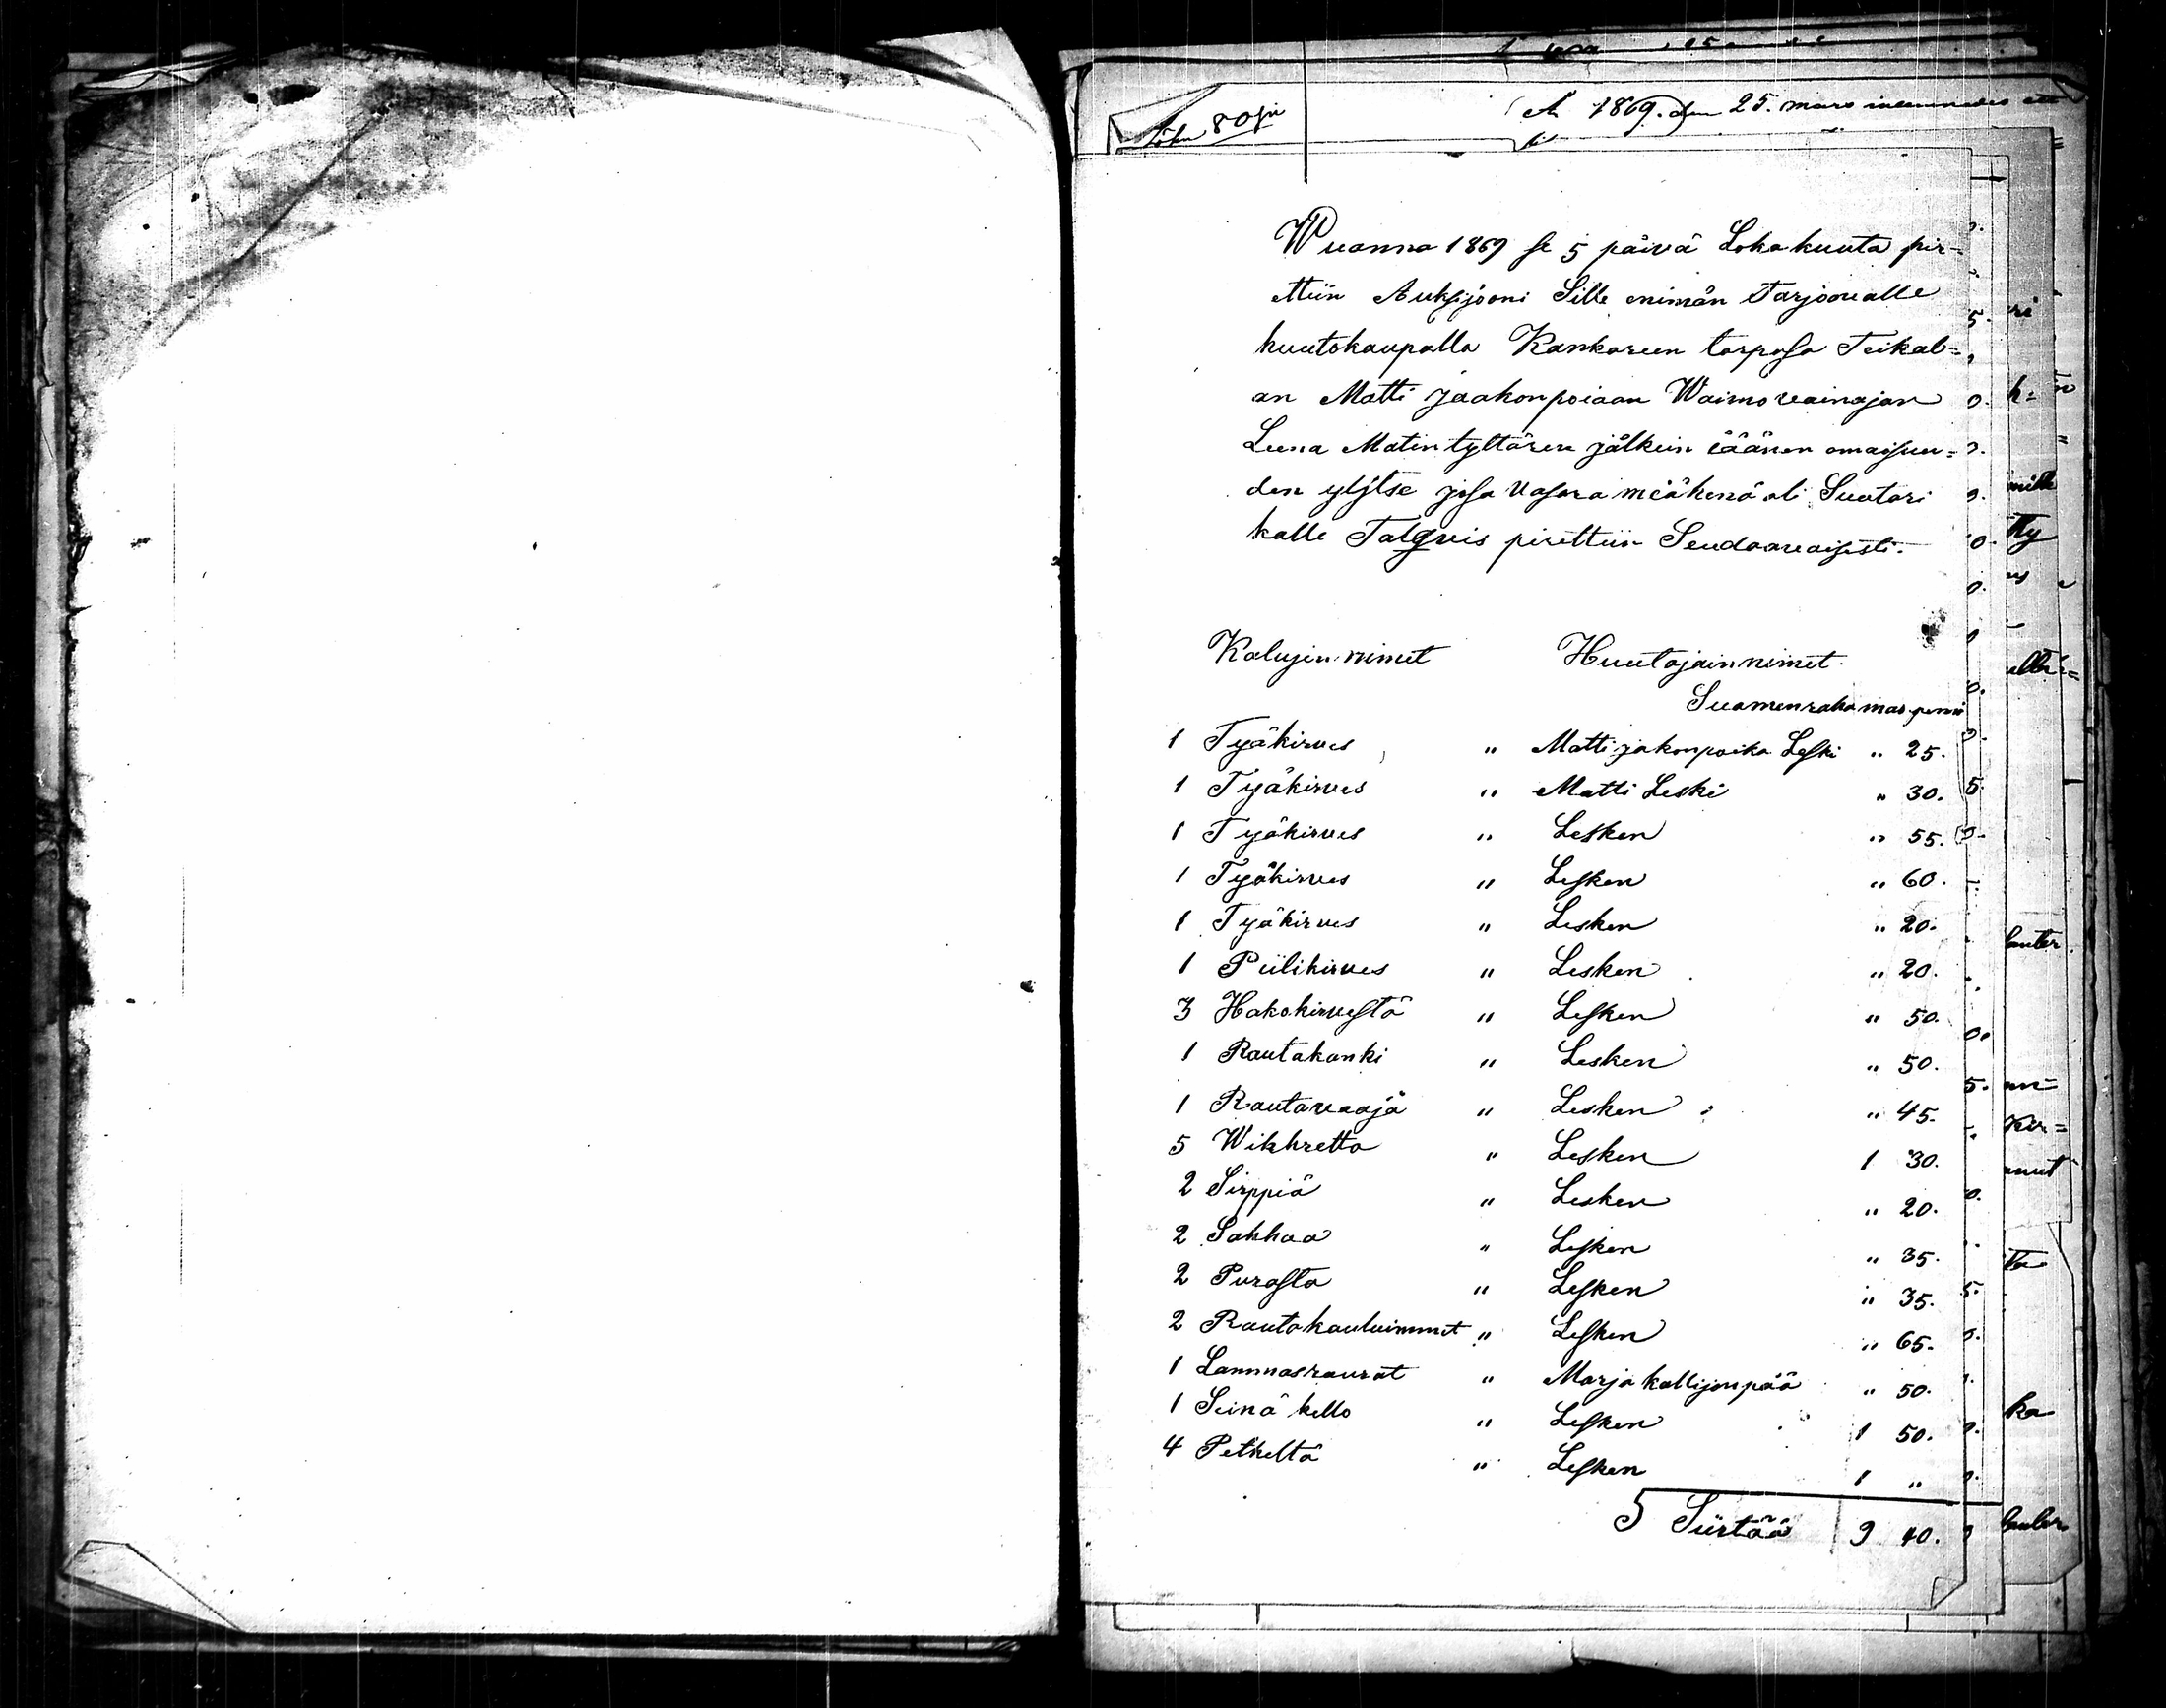 A 1869. den 25. mars
Wuonna 1869 se 5 päivä Lokakuuta pir=
ettiin Auksijooni Sille enimän Tarjoovalle
huutokaupalla Kankareen torpasa Teikal=
an Matti Jaakonpoiaan Waimovainajan
Leena Matintyttären jälkein jäänen omaisuu=
den ylitse josa Vasara miähenä oli Suutari
kalle Talqvis pirettiin Seudaavaisesti.
Kalujin nimet Huutajain nimet.
Suomenraha mar penni
1 Tyäkirves " Matti jakonpoika Leski " 25.
1 Tyäkirves " Matti Leski " 30.
1 Tyäkirves " Lesken " 55.
1 Tyäkirves " Lesken " 60.
1 Tyäkirves " Lesken " 20.
1 Piilikirves " Lesken " 20.
3 Hakokirvestä " Lesken " 50.
1 Rautakanki " Lesken " 50.
1 Rautavaaja " Lesken " 45.
5 Wikhretta " Lesken 1 30.
2 Sirppiä " Lesken " 20.
2 Sahhaa " Lesken " 35.
2 Purasta " Lesken " 35.
2 Rautakauluimmet " Lesken " 65.
1 Lammasraurat " Marja kallijonpää " 50.
1 Seinä kello " Lesken 1 50.
4 Petkeltä " Lesken 1 "
S Siirtää 9 40.